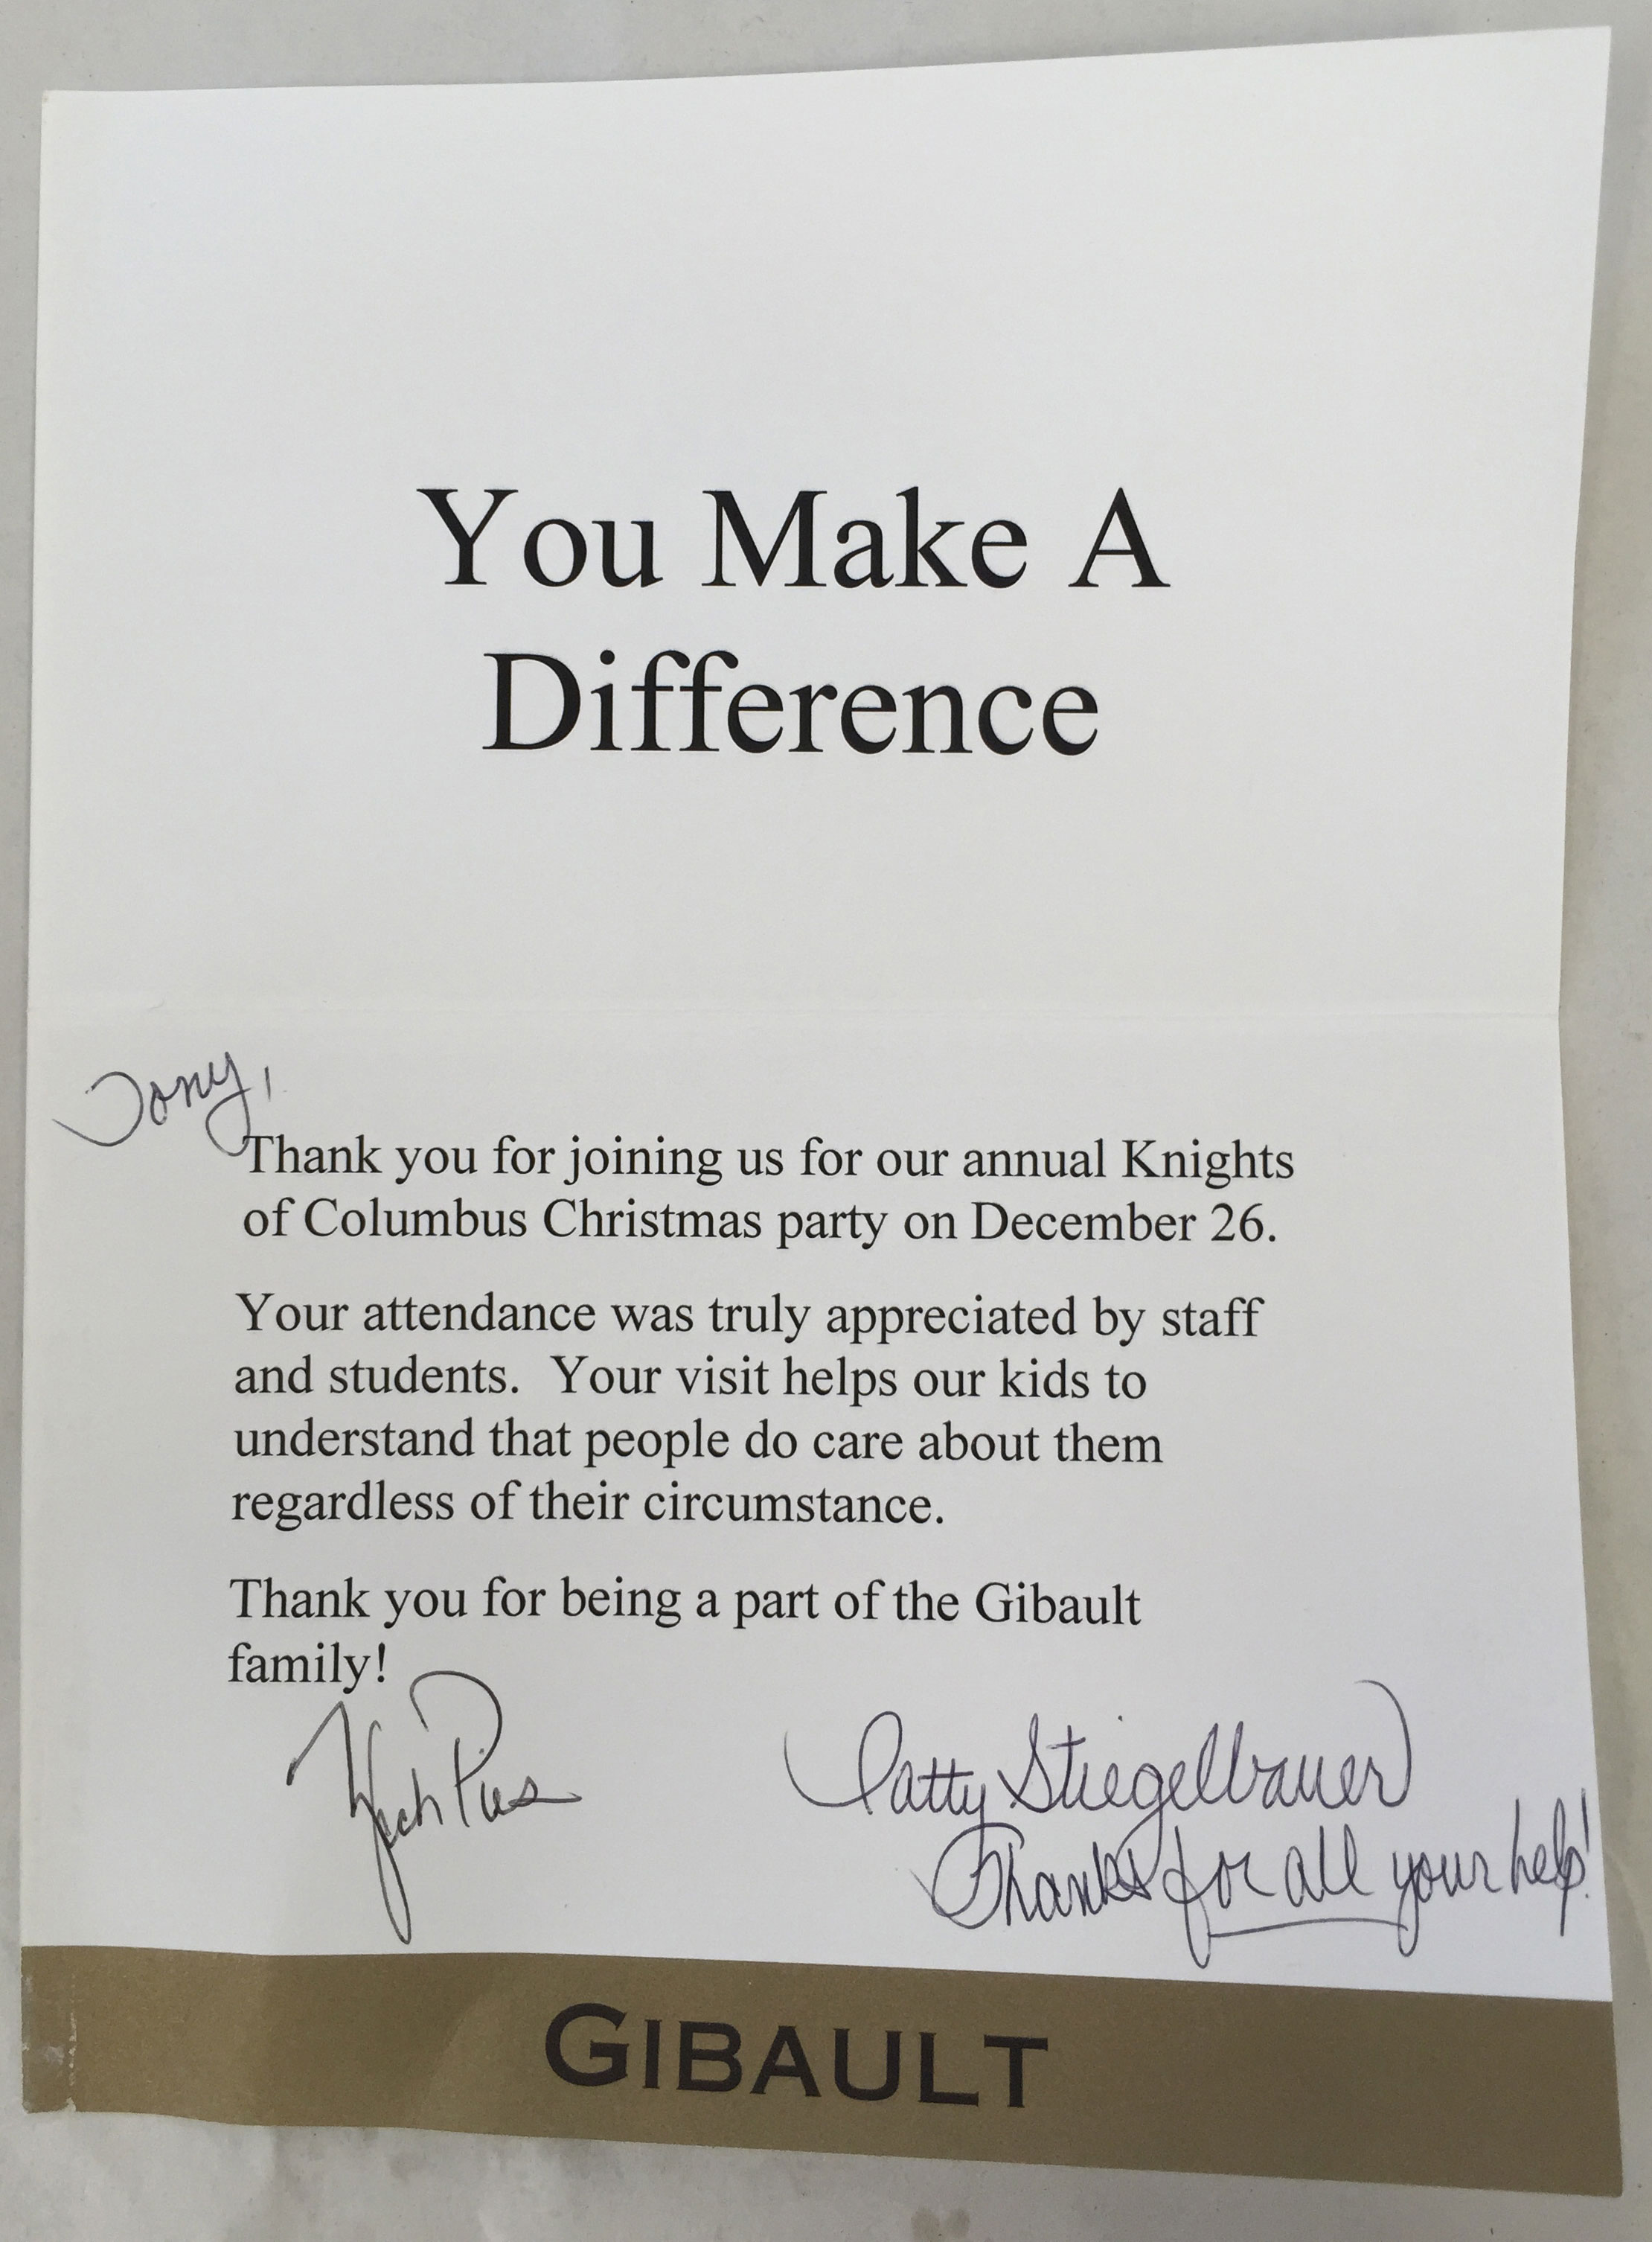 You Make A
Difference
Tony,
Thank you for joining us for our annual Knights
of Columbus Christmas party on December 26.
Your attendance was truly appreciated by staff
and students.  Your visit helps our kids to
understand that people do care about them
regardless of their circumstance.
Thank you for being a part of the Gibault
family!
Patty Stiegelbauer
Thanks for all your help!
GIBAULT